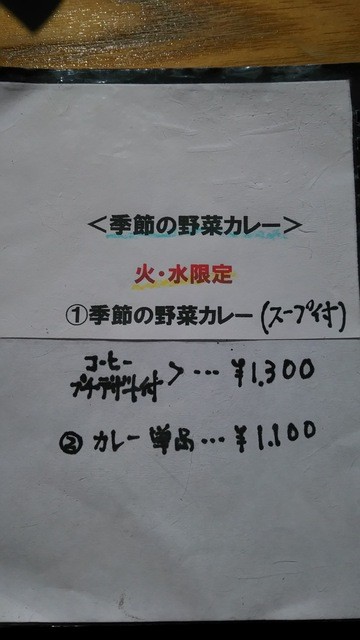 ＜季節の野菜カレー＞
火・水限定
①季節の野菜カレー(スープ付)
コーヒー
プチデザート付 > … ¥1.300
② カレー単品 … ¥1.100